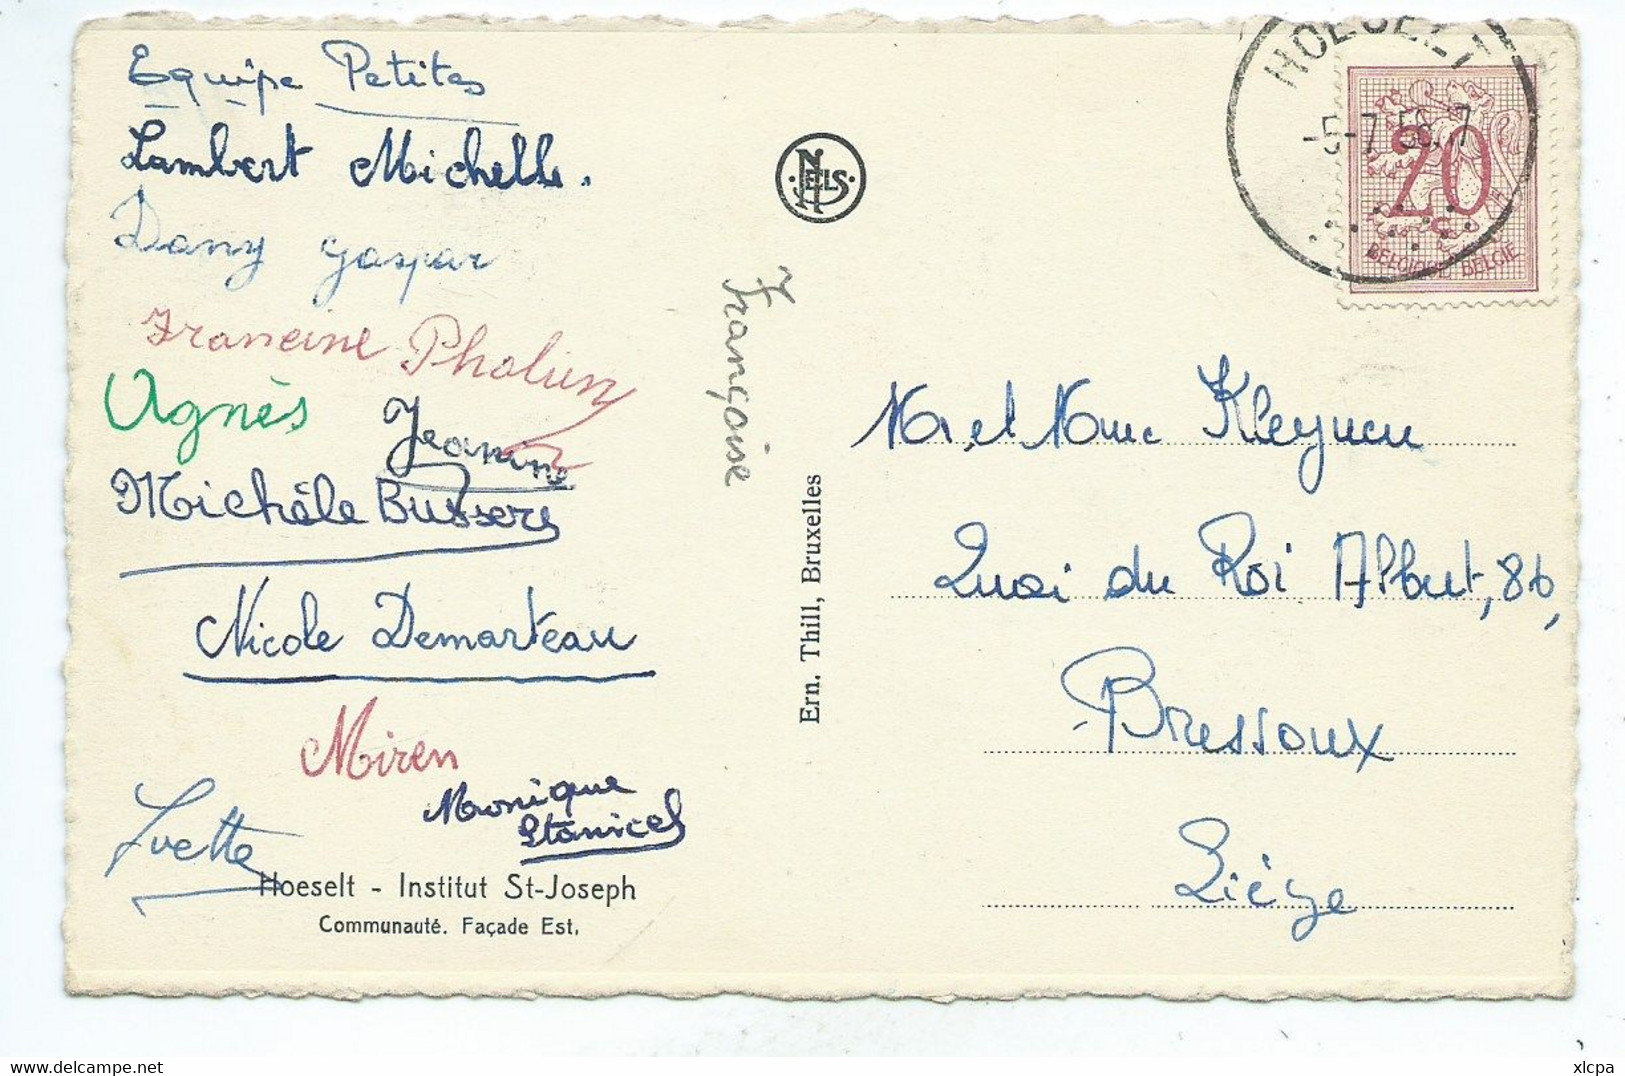 Equipe Petites
Lambert Michelle.
Dany Gaspar
Francine
Agnès
Jeanine
Michèle Bussers
Nicole Demarteau
Miren
Monique
Yvette
Hoeselt - Institut St-Joseph
Communauté. Façade Est.
Françoise
NELS
Ern. Thill, Bruxelles
HOESELT
20
BELGIQUE-BELGIE
Mr et Mme Kleynen
Quai du Roi Albert, 86,
Bressoux
Liége
delcampe.net
xlcpa